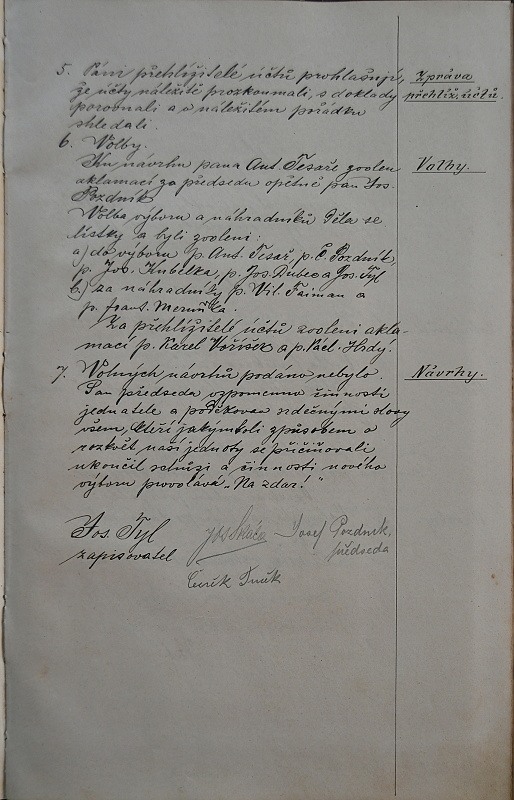 5. Páni přehlížitelé účtů prohlašují,
Zpráva
že účty náležitě prozkoumali, s doklady
přehlíž. účtů.
porovnali a v náležitém pořádku
shledali.
6. Volby.
Ku návrhu pana Ant. Tesaře zvolen
Volby.
aklamací za předsedu opětně pan Jos.
Pozdník
Volba výboru a náhradníků děla se
lístky a byli zvoleni:
a) do výboru p. Ant. Tesař, p. Č. Pozdník,
p. Jos. Kubelka, p. Jos. Dubec a Jos. Tyl
b.) za náhradníky p. Vil. Faiman a
p. Frant.
Za přehlížitelé účtů zvoleni akla-
mací p. Karel Voříšek a p. Václ. Hrdý.
7. Volných návrhů podáno nebylo.
Návrhy.
Pan předseda vzpomenuv činnosti
jednatele a poděkovav srdečnými slovy
všem, kteří jakýmkoli způsobem o
rozkvět naší jednoty se přičiňovali
ukončil schůzi a činnosti nového
výboru provolává „Na zdar!"
Jos. Tyl
Josef Pozdník,
zapisovatel
předseda